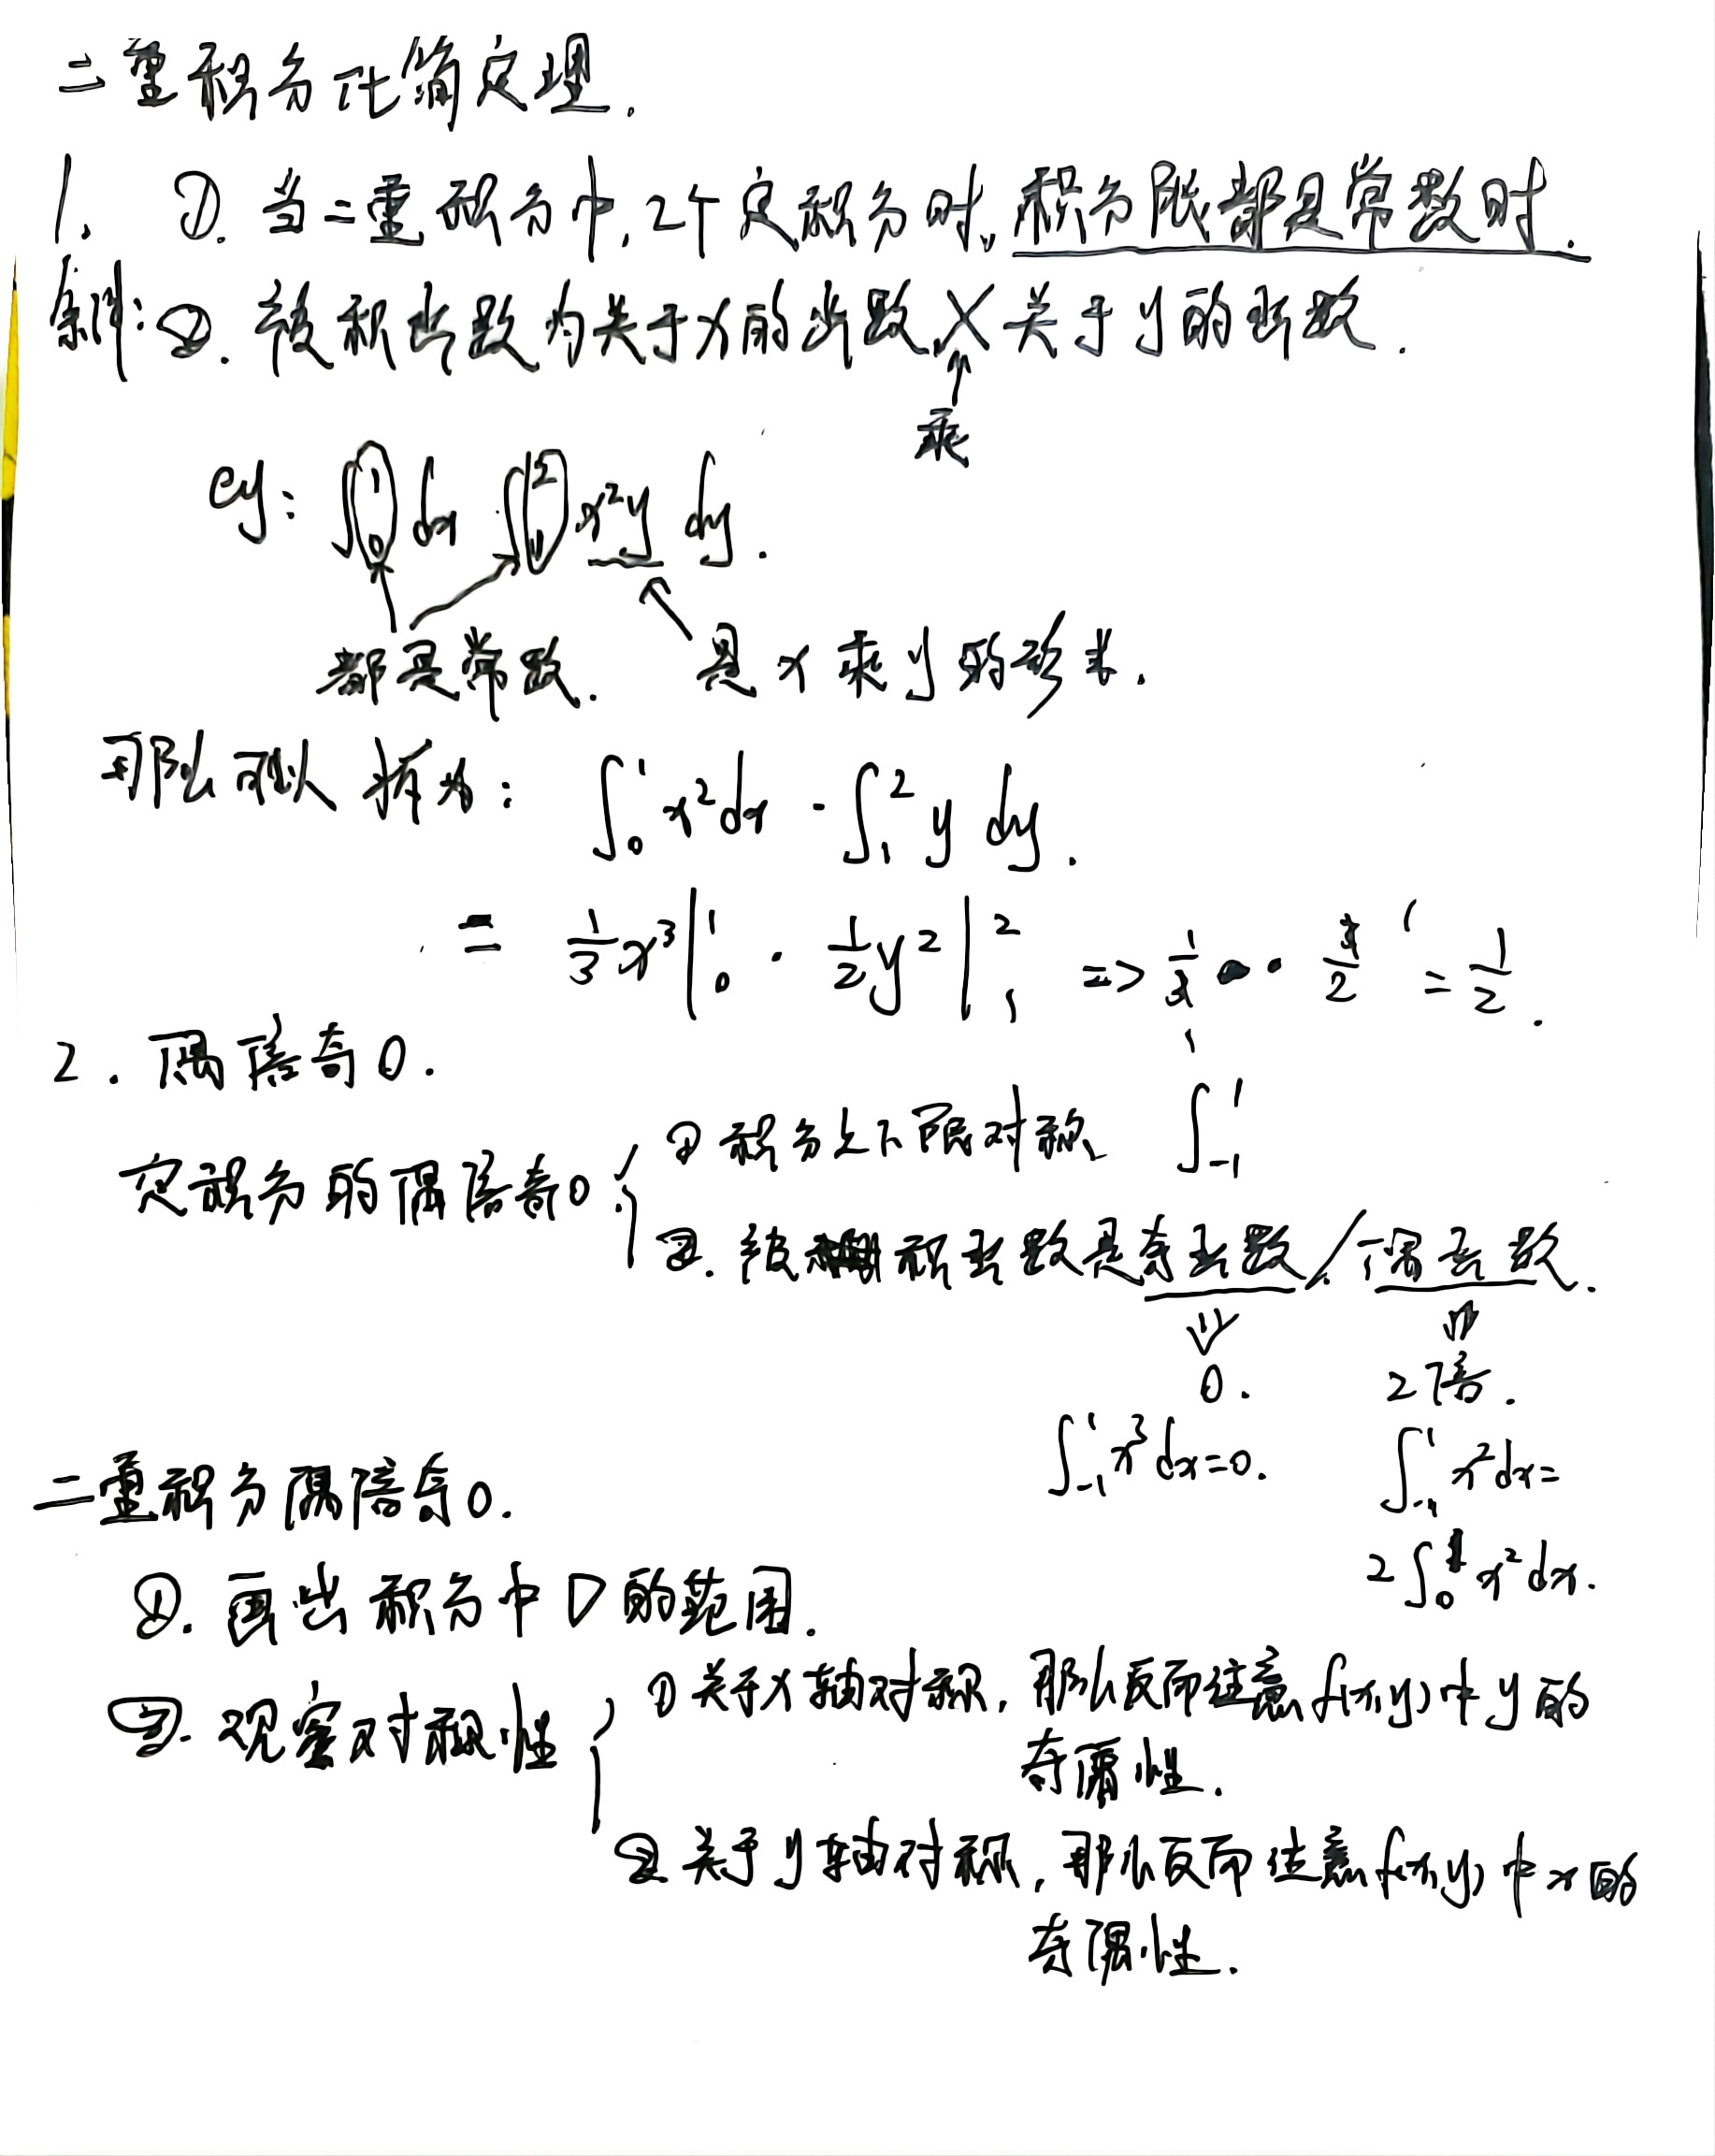 二重积分化简定理.
1. ①. 当二重积分中,2个定积分时,积分限都是常数时.
条件:②. 被积函数为关于x的函数 X 关于y的函数.
乘
eg: ∫₀¹ dx ∫₁² x²y dy.
都是常数. 是x乘y的形式.
那么可以拆为: ∫₀¹ x²dx · ∫₁² y dy.
= 1/3 x³|₀¹ · 1/2 y²|₁² => 1/3 · 3/2 = 1/2.
2. 偶倍奇0.
定积分的偶倍奇0: { ①积分上下限对称 ∫₋₁¹
②. 被积函数是奇函数/偶函数.
0. 2倍.
∫₋₁¹ x³dx=0. ∫₋₁¹ x²dx=
2∫₀¹ x²dx.
二重积分偶倍奇0.
①. 画出积分中D的范围.
②. 观察对称性 { ①关于x轴对称, 那么反而注意f(x,y)中y的
奇偶性.
②关于y轴对称, 那么反而注意f(x,y)中x的
奇偶性.